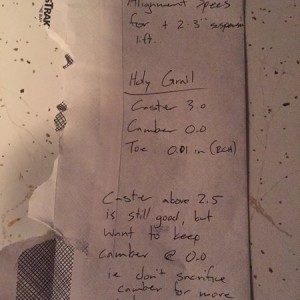 STRAK
Alignment Specs
for + 2-3" suspension
lift.
Holy Grail
Caster 3.0
Camber 0.0
Toe 0.01 in (RCH)
Caster above 2.5
is still good, but
want to keep
camber @ 0.0
ie don't sacrifice
camber for more